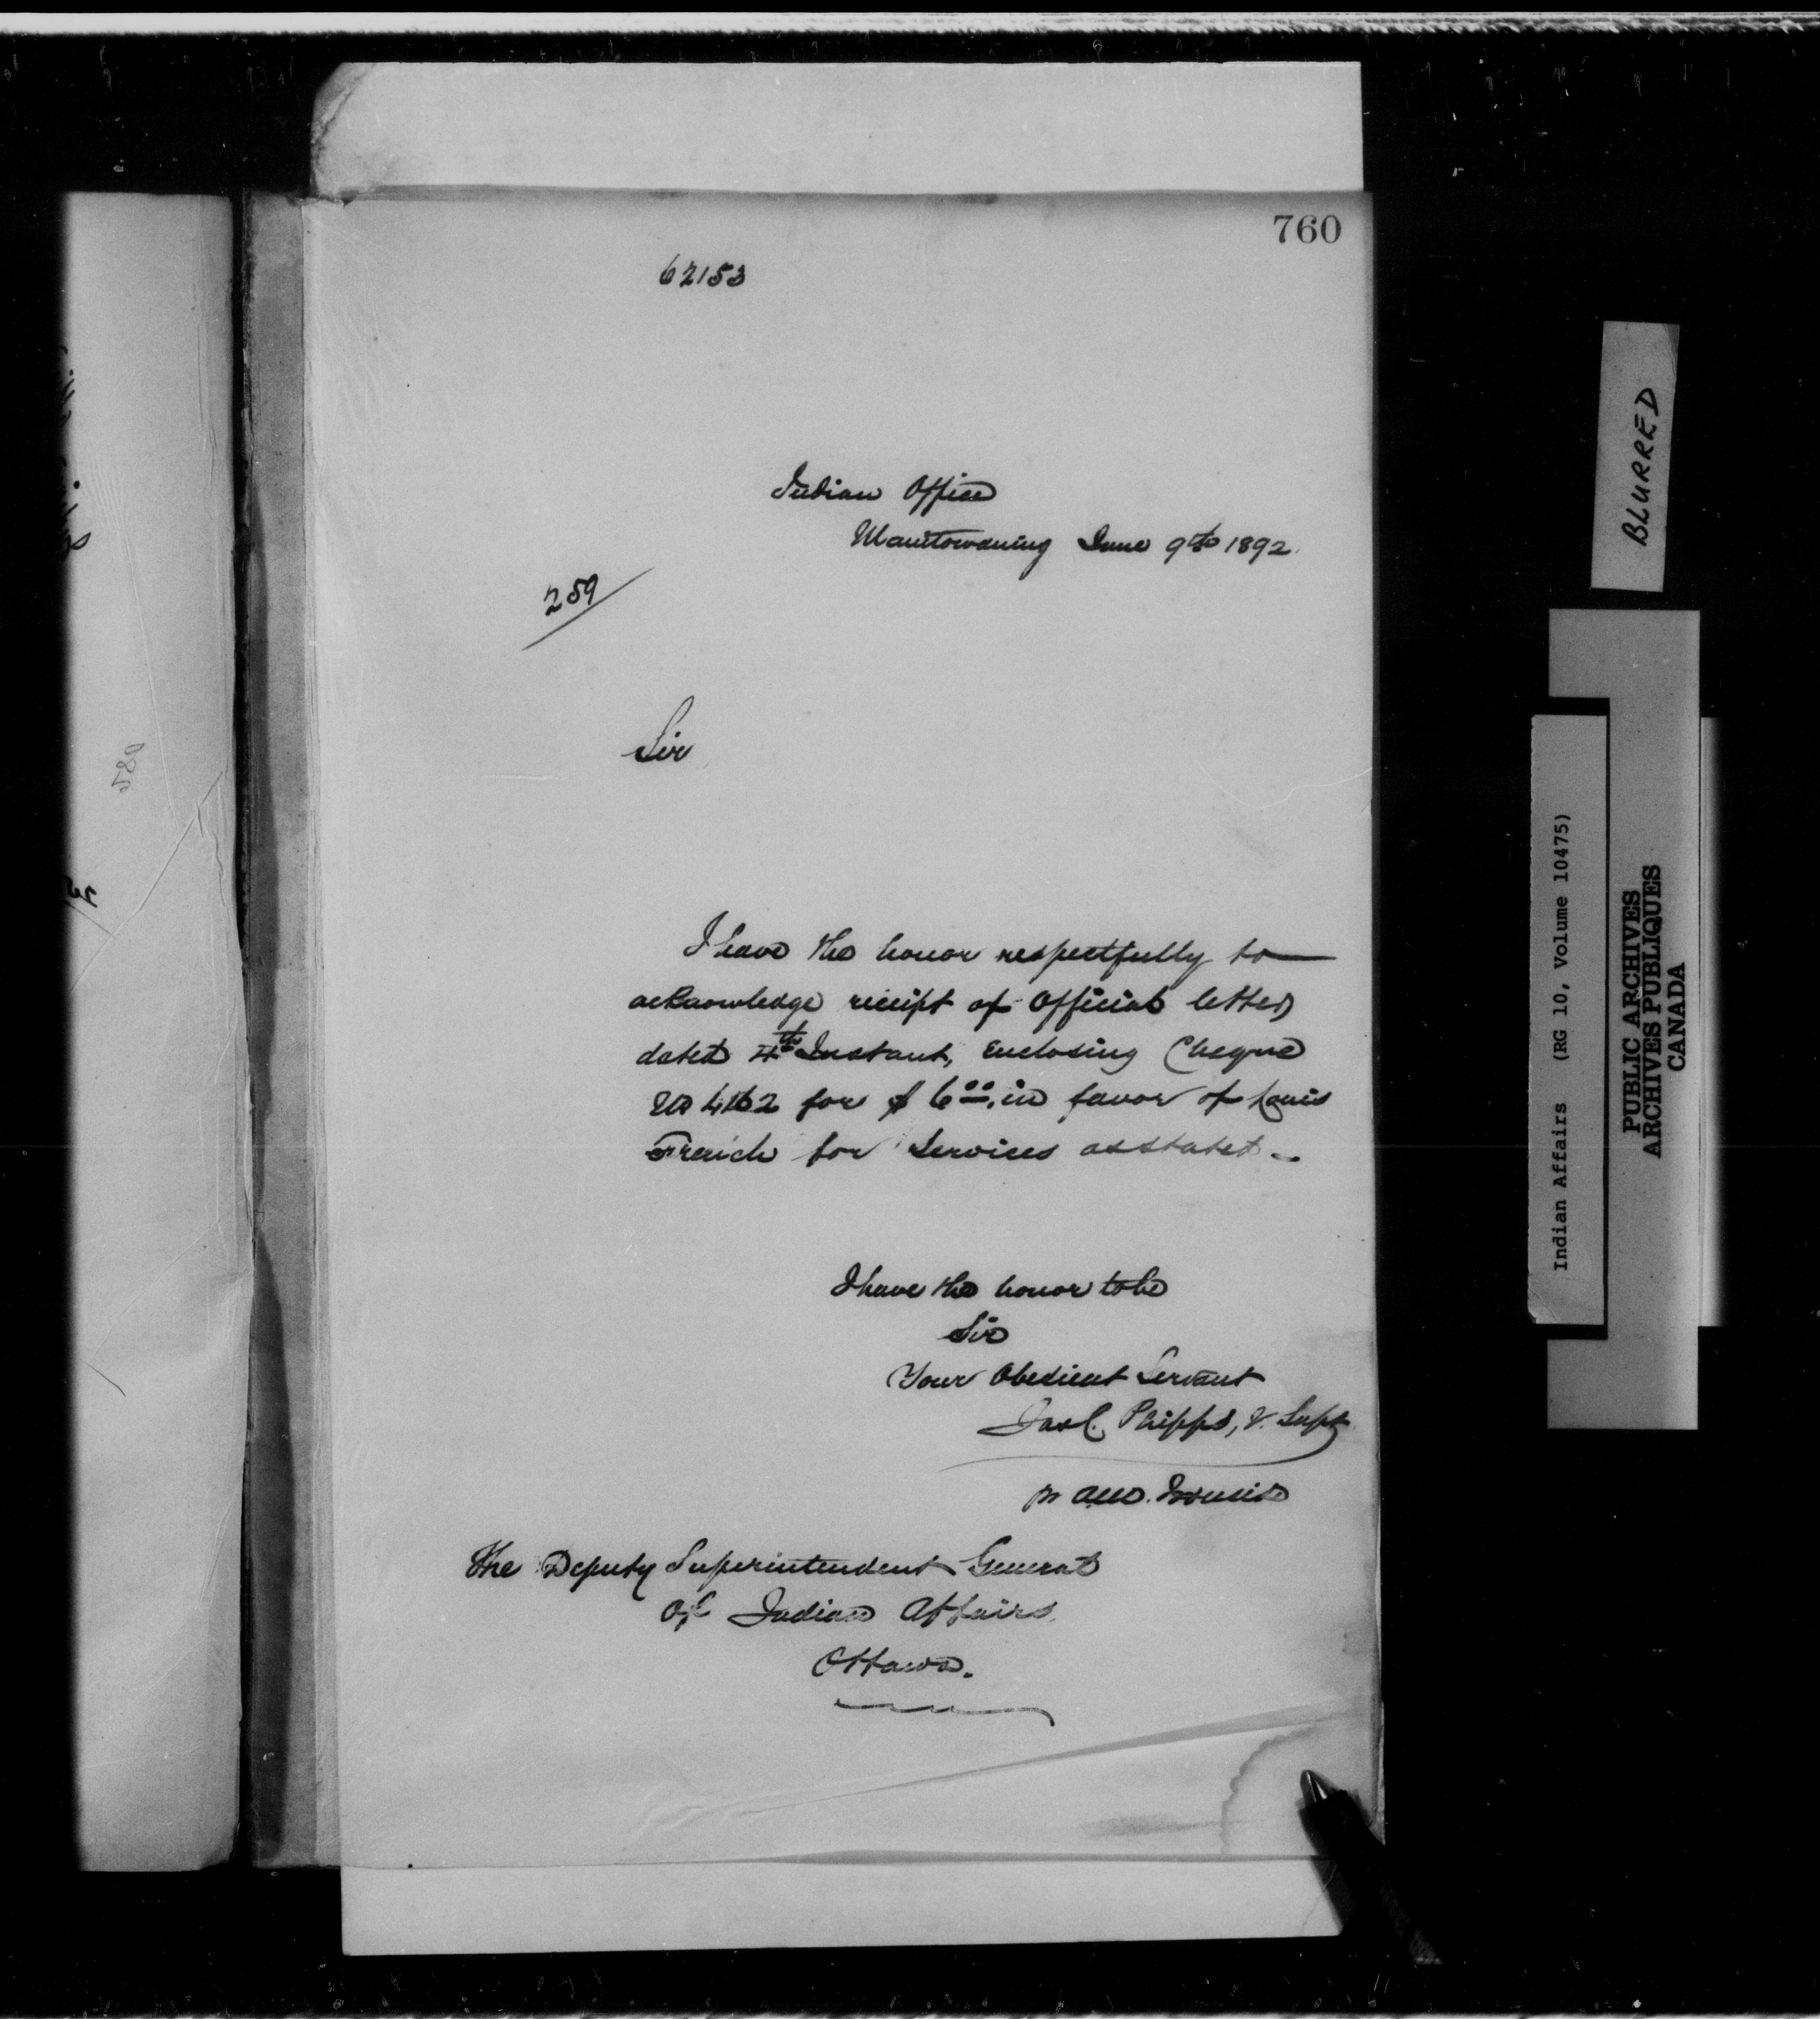 760
62153
Indian Office
Manitowaning June 9th 1892.
259
Sir
I have the honor respectfully to
acknowledge receipt of Official letter
dated 4th Instant, enclosing Cheque
No 4162 for $6.00, in favor of Louis
French for Services as stated.
I have the honor to be
Sir
Your Obedient Servant
Jas C. Phipps, V. Supt
The Deputy Superintendent General
Of Indian Affairs
Ottawa.
BLURRED
Indian Affairs (RG 10, Volume 10475)
PUBLIC ARCHIVES
ARCHIVES PUBLIQUES
CANADA